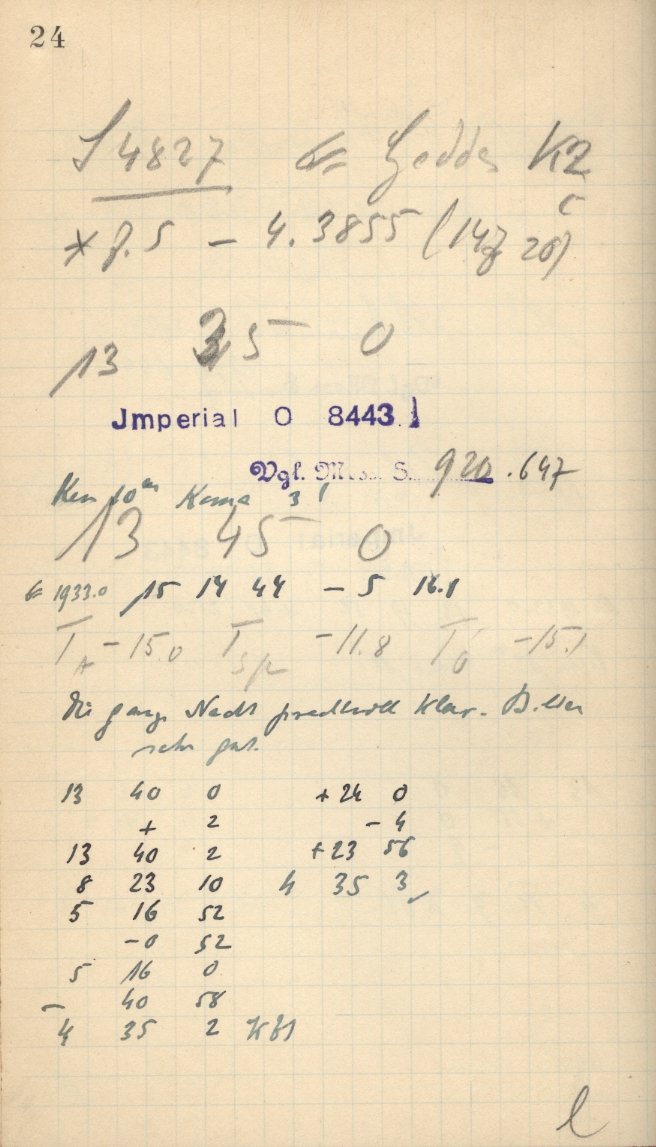 24
S 4827 Geddes K2
c
* 8.5 – 4.3855 (147 20)
13 35 0
Jmperial O 8443
Vgl. S. 920.647
Kern 10m Koma 3'
13 45 0
1933.0 15 14 44 – 5 16.1
TA – 15.0 TSp – 11.8 TO – 15.1
Die ganze Nacht prachtvoll klar. Bilder
sehr gut.
13 40 0 +24 0
+ 2 – 4
13 40 2 +23 56
8 23 10 4 35 3
5 16 52
–0 52
5 16 0
– 40 58
4 35 2
l